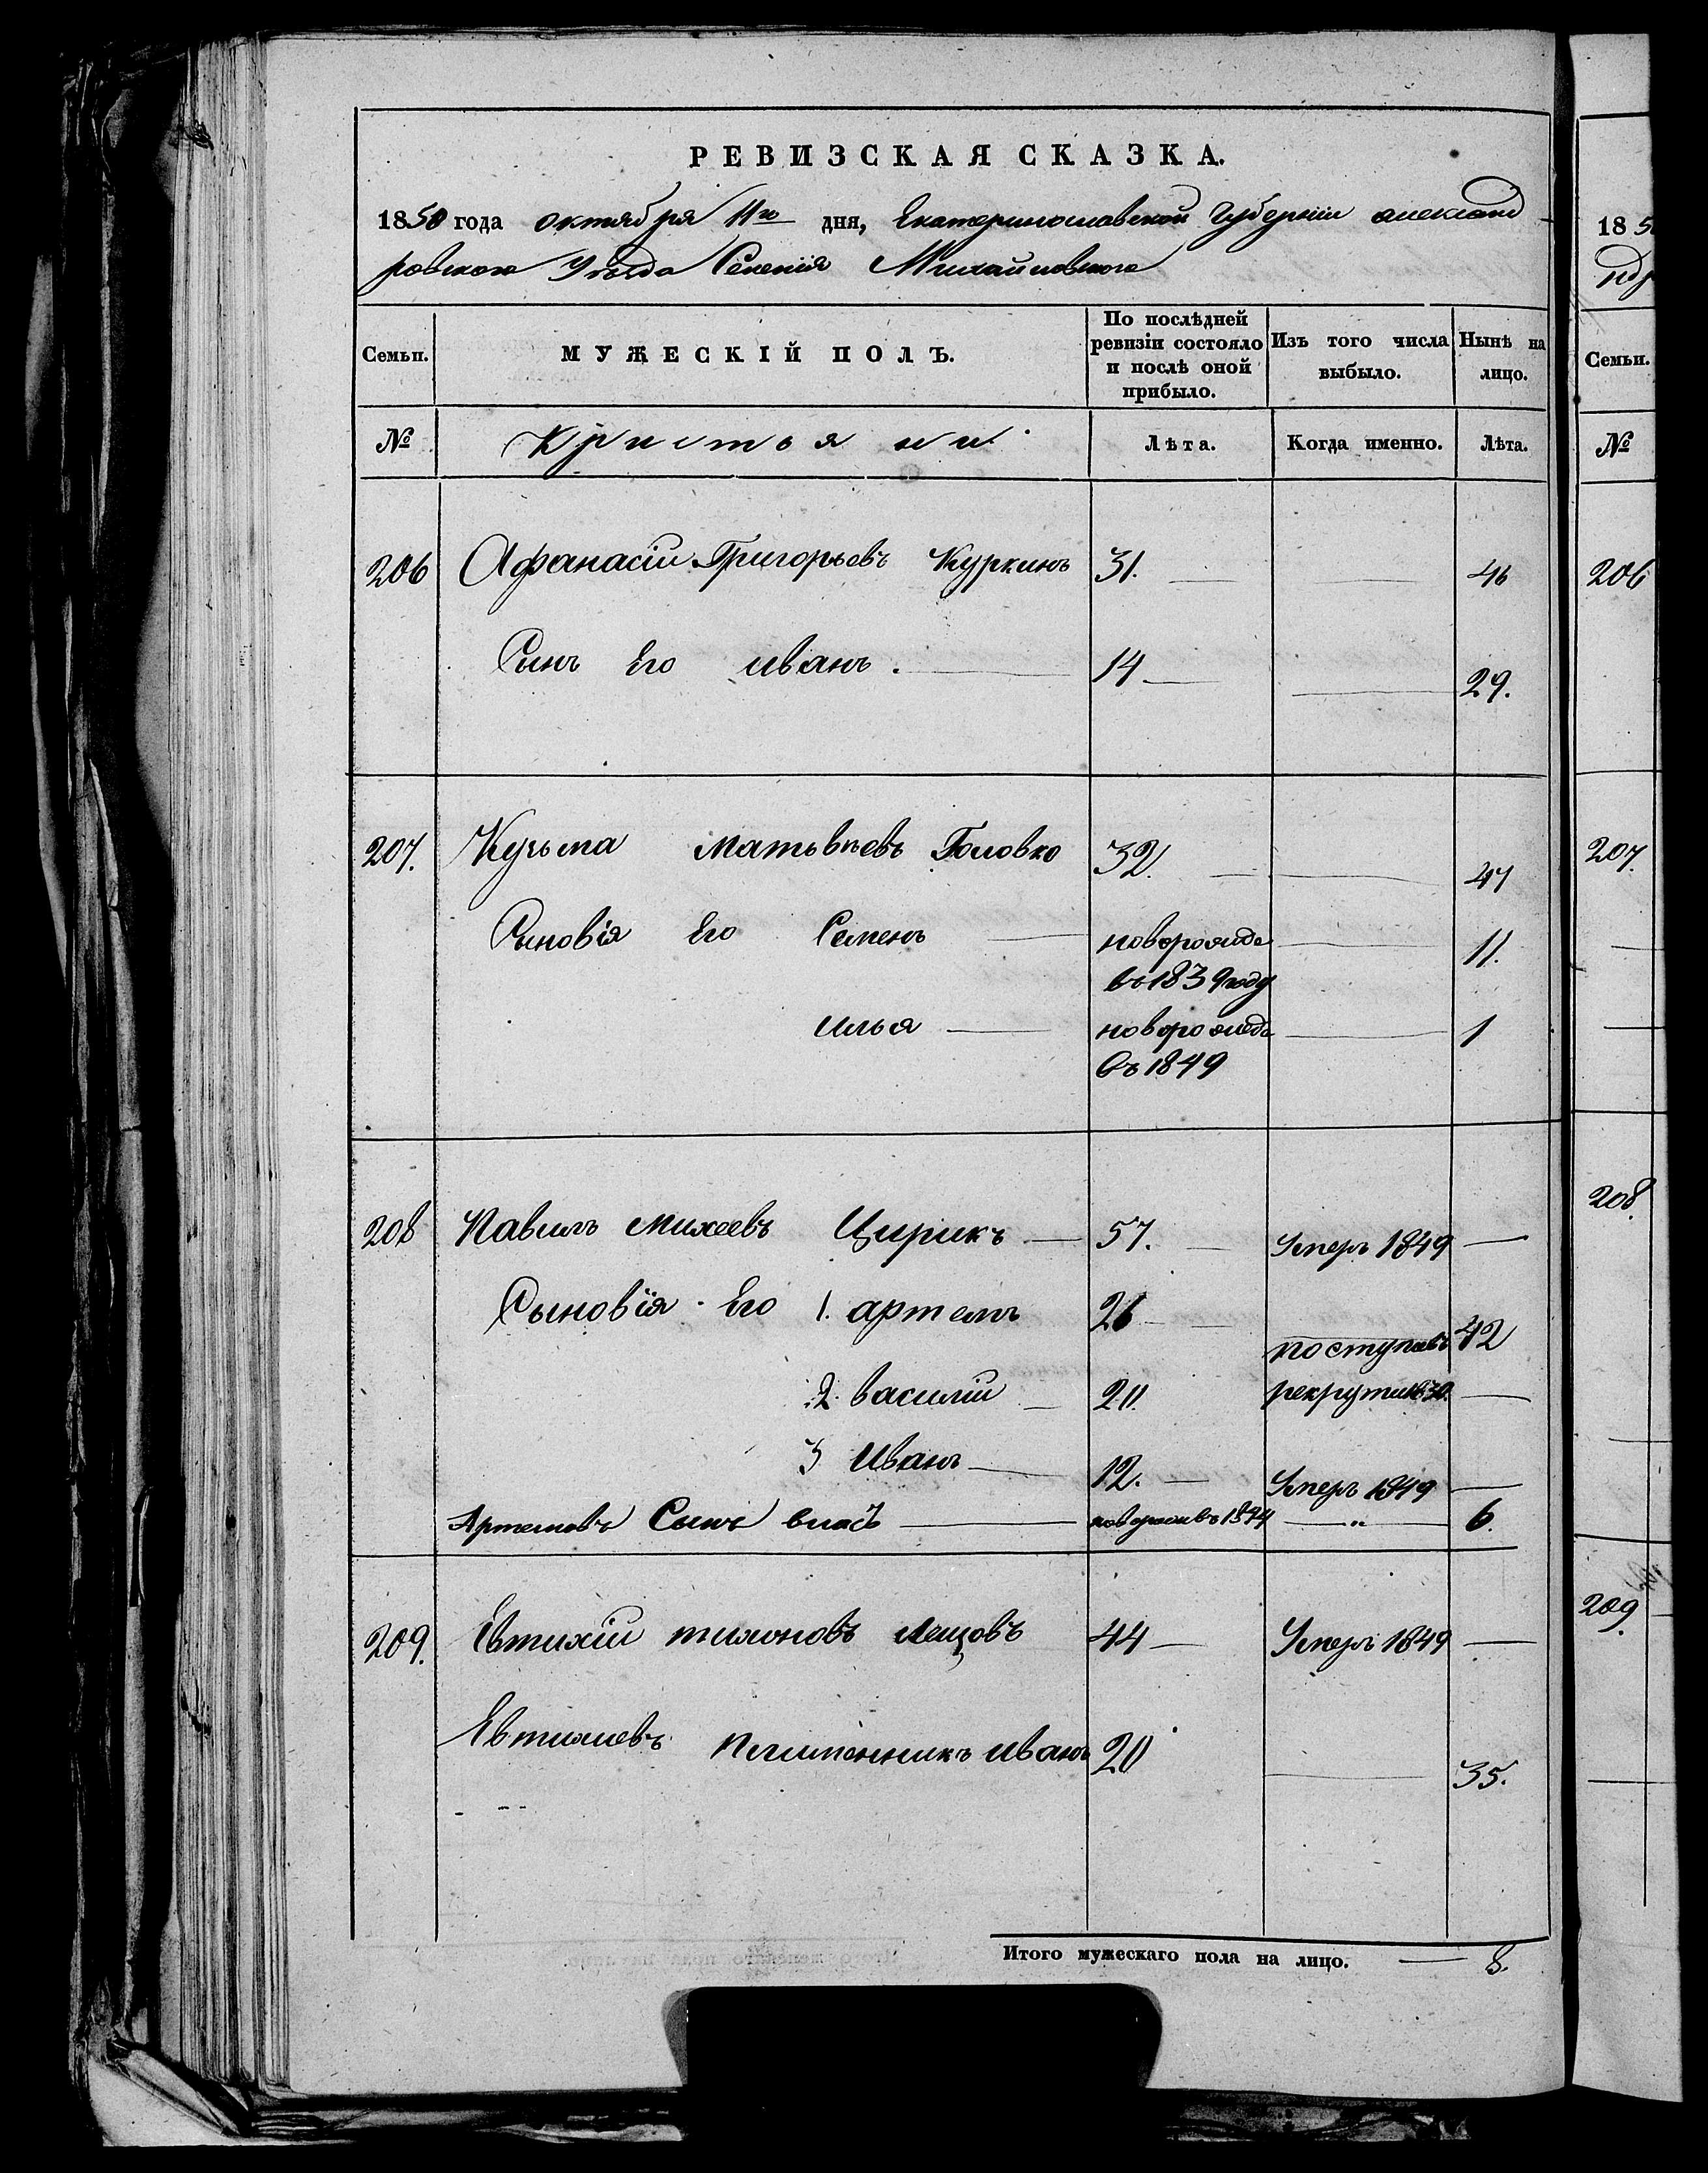 РЕВИЗСКАЯ СКАЗКА.
1850 года октября 11го дня, Екатеринославской Губернии александ
ровского Уезда Селения Михайловского
Семьи.
МУЖЕСКІЙ ПОЛЪ.
По послѣдней ревизіи состояло и послѣ оной прибыло.
Изъ того числа выбыло.
Нынѣ на лицо.
№
Кристьяни
Лѣта.
Когда именно.
Лѣта.
206 Афанасій Григорьевъ Куркинъ 31. 46
Сынъ Его иванъ. 14 29.
207. Кузьма матьвѣевъ Головко 32. 47
Сыновія Его Семенъ новорожде 11.
въ 1839 году
илья новорожде 1
въ 1849
208 Павилъ михеевъ Цирикъ 57. Умеръ 1849
Сыновія Его 1. артемъ 26 42
поступивъ
2. василіи 20. рекрути 1830.
3 Иванъ 12. Умеръ 1849
Артемовъ Сынъ власъ новорожвъ 1844 „ 6.
209. Евтихіи тихоновъ лещовъ 44 Умеръ 1849
Евтихиевъ племенникъ иванъ 20 35.
Итого мужескаго пола на лицо. 8.
18 5
ндр
Семьи.
№
206
207.
208.
209.